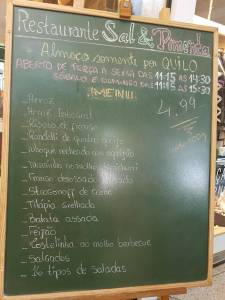 Restaurante Sal & Pimenta
Almoço somente por QUILO
ABERTO DE TERÇA A SEXTA DAS 11:15 ÀS 14:30
SÁBADO E DOMINGO DAS 11:15 ÀS 15:30
MENU
4,99
_ Arroz
_ Arroz Integral
_ Rondelli de quatro queijo
_ Frango desossado
_ Strogonoff de carne
_ Tilápia grelhada
_ Batata assada
_ Feijão
_ Costelinha ao molho barbecue
_ Salgados
_ 16 tipos de saladas